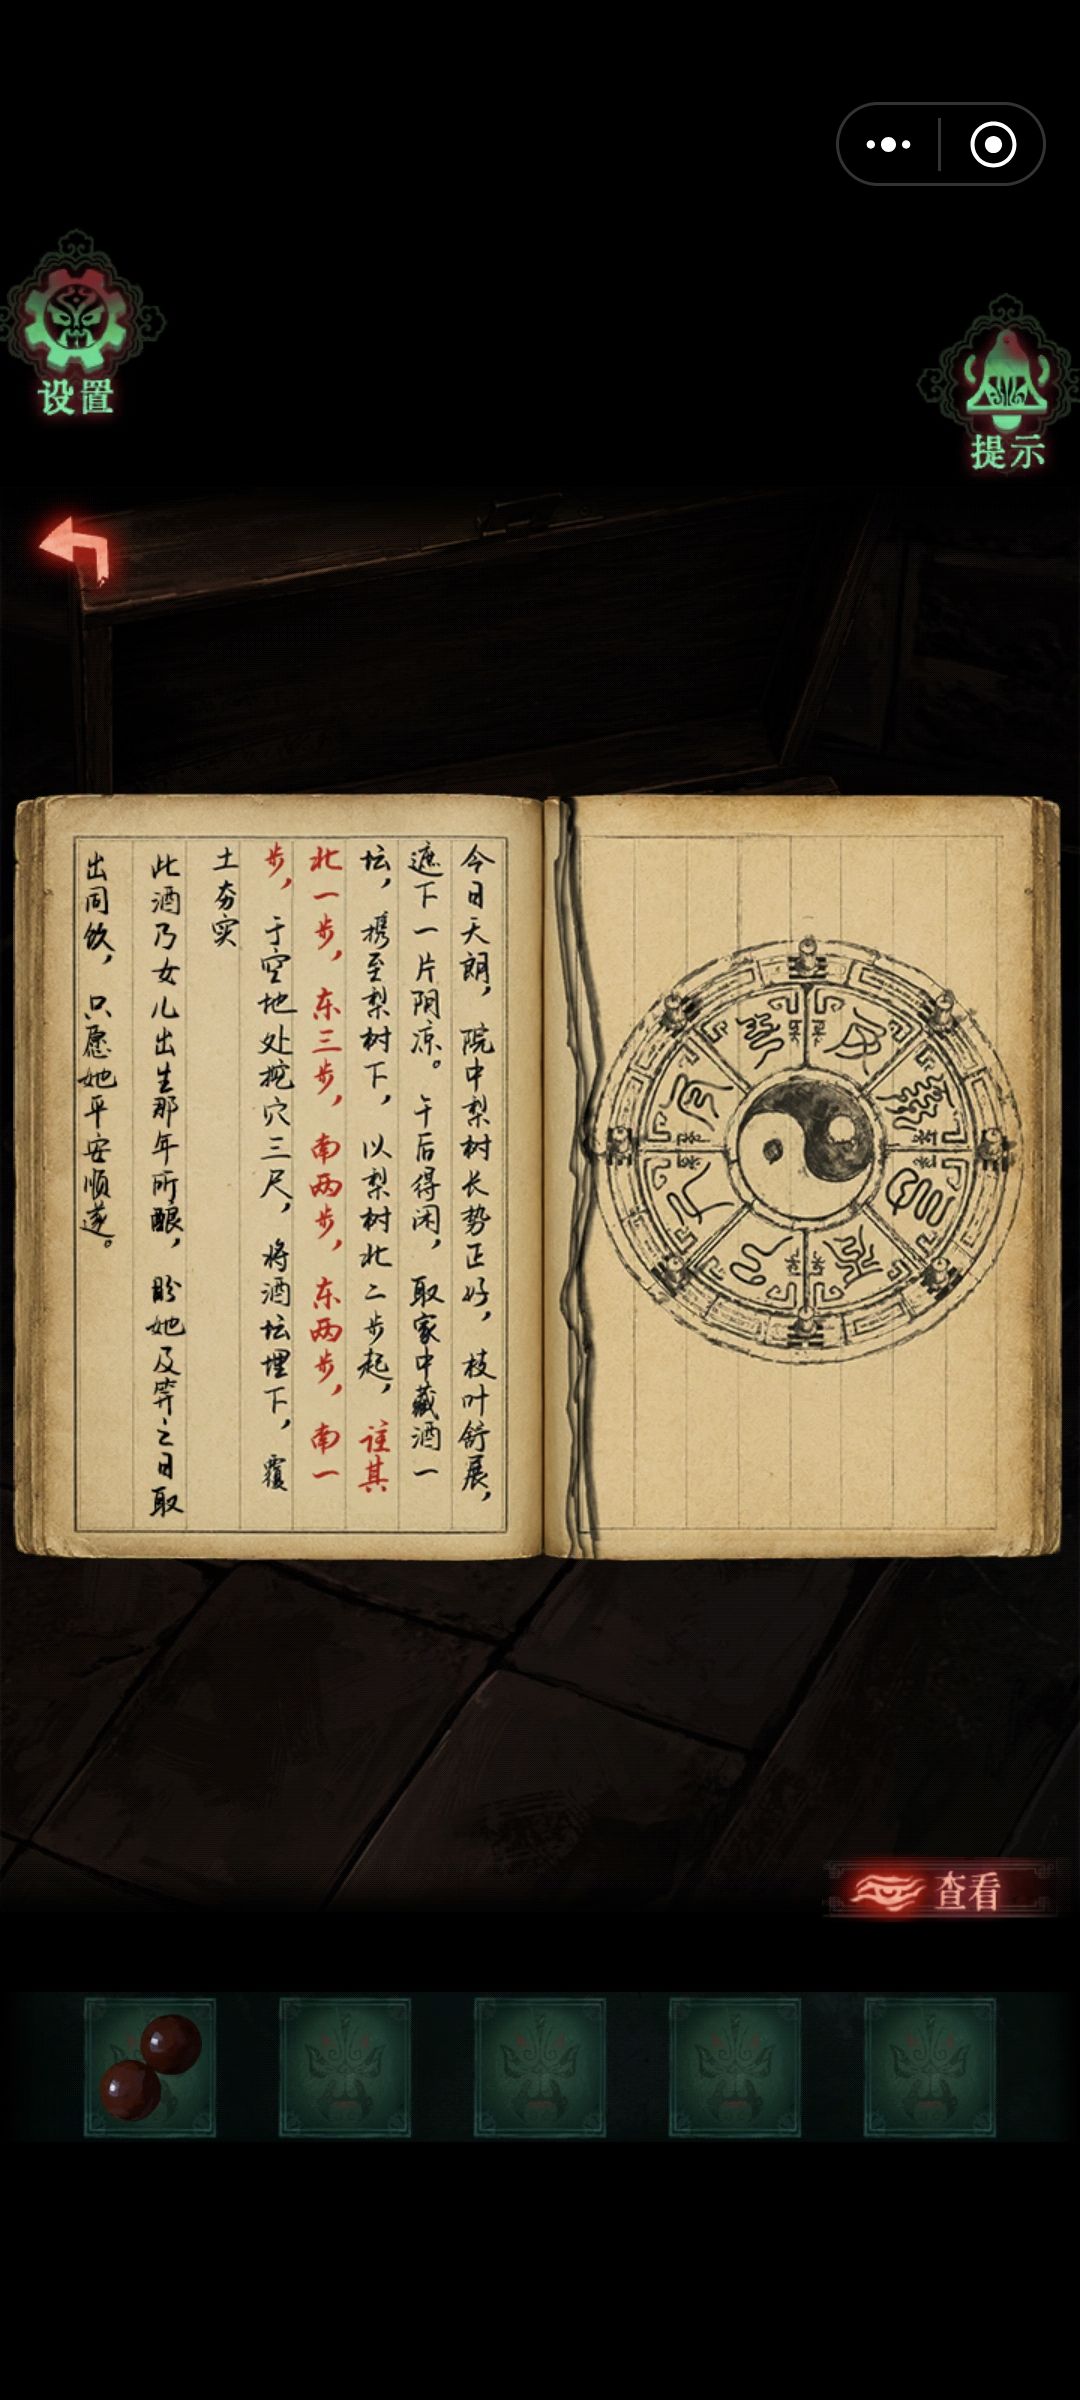 设置
提示
今日天朗，院中梨树长势正好，枝叶舒展，
遮下一片阴凉。午后得闲，取家中藏酒一
坛，携至梨树下，以梨树北二步起，往其
北一步，东三步，南两步，东两步，南一
步，于空地处挖穴三尺，将酒坛埋下，覆
土夯实
此酒乃女儿出生那年所酿，盼她及笄之日取
出同饮，只愿她平安顺遂。
查看